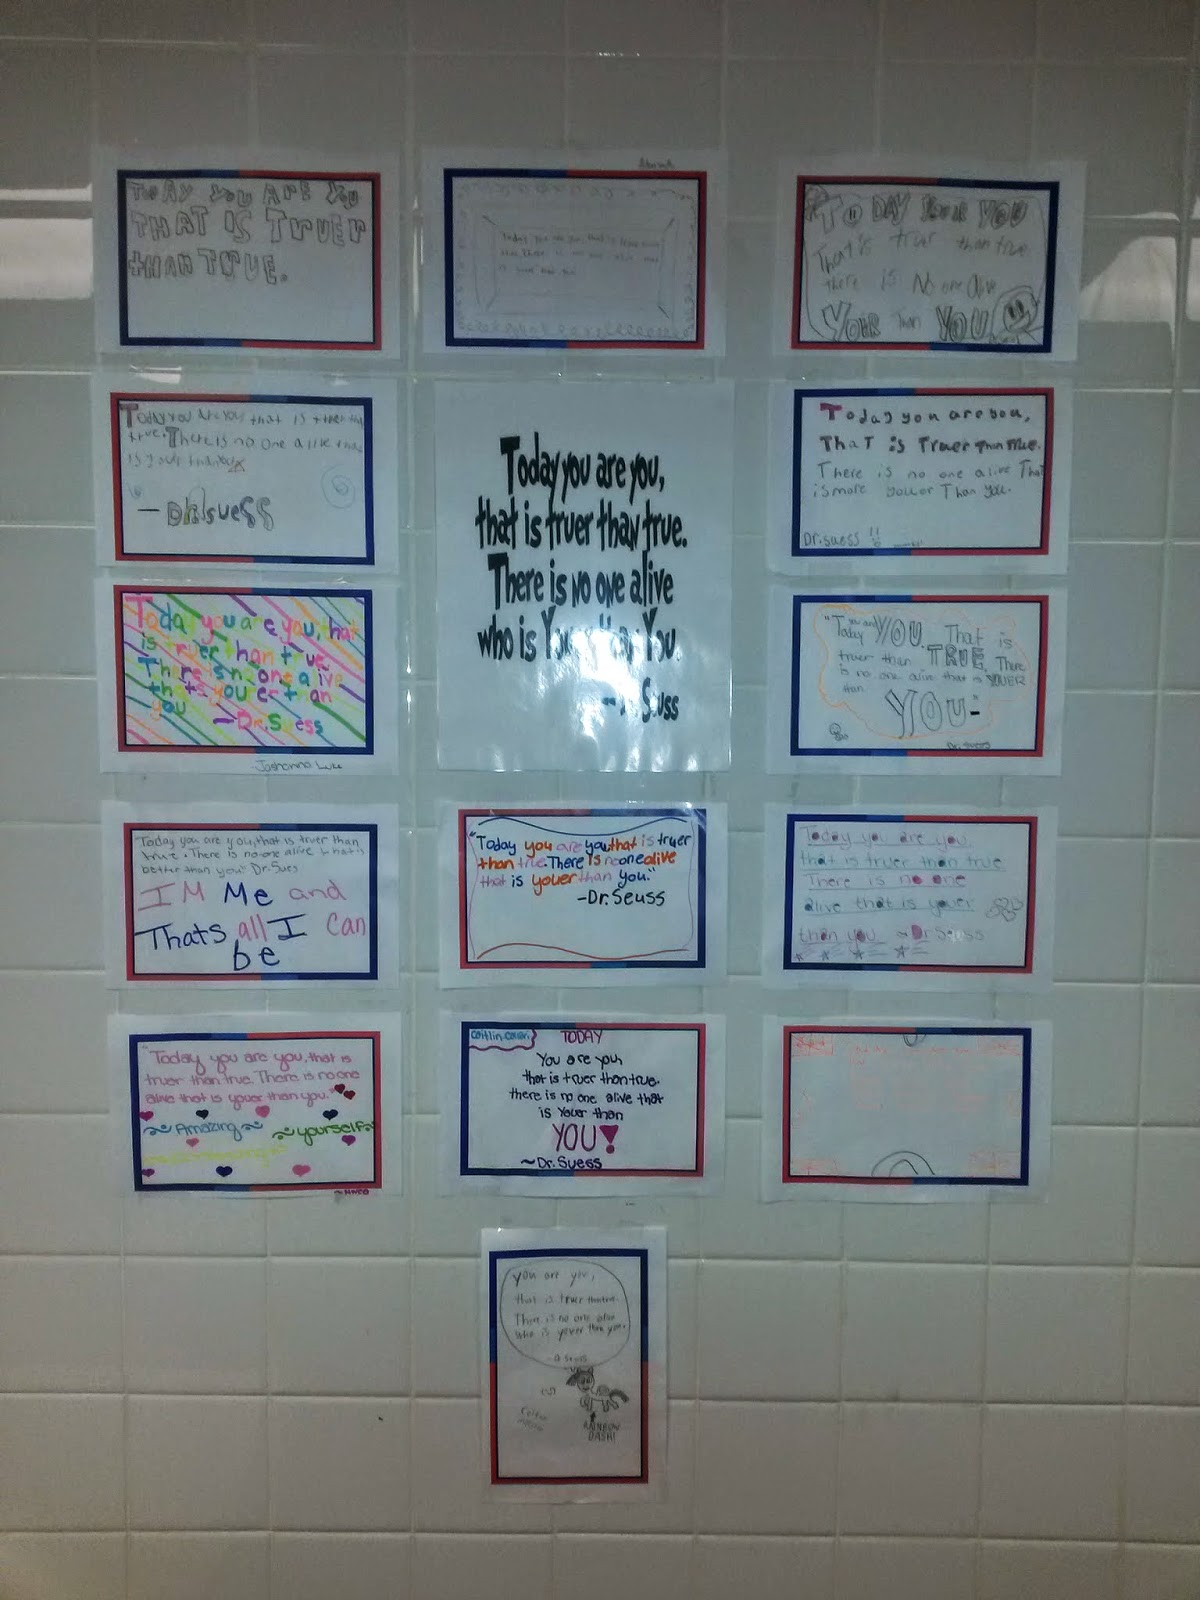 TODAY YOU ARE YOU
THAT IS TrUEr
tHAN TrUE.
Today You are you, that is truer
TO DAY YOU
That is truer than true
there is No one alive
YOUER Than YOU
Today you Are you that is truer than
true. There is no one alive that
is your than
- Dr. suess
Today you are you,
that is truer than true.
There is no one alive
who is Youer than You.
-- Dr. Seuss
Today you are you,
ThaT is Truer Than True.
There is no one alive That
is more youer Than you.
Dr. suess !!
Today you are you, that
is truer than true
There is no one alive
thats you er than
you - Dr. Suess
-Jashanna Luke
"Today you are YOU. That is
truer than TRUE. There
is no one alive that is YOUER
than
YOU-"
Dr. suess
"Today you are you, that is truer than
true. There is no one alive that's
better than you" Dr. Sues
IM Me and
Thats all I can
be
"Today you are you that is truer
than true. There is no one alive
that is youer than you."
-Dr. Seuss
Today you are you
that is truer than true
There is no one
alive that is youer
than you ~Dr Seuss
"Today you are you, that is
truer than true. There is no one
alive that is youer than you."
~Amazing~
~yourself~
Caitlin
TODAY
You are you,
that is truer than true.
there is no one alive that
is Youer than
YOU!
~Dr. Suess
you are you,
that is truer than true.
There is no one alive
who is youer than you.
RAINBOW
DASH!